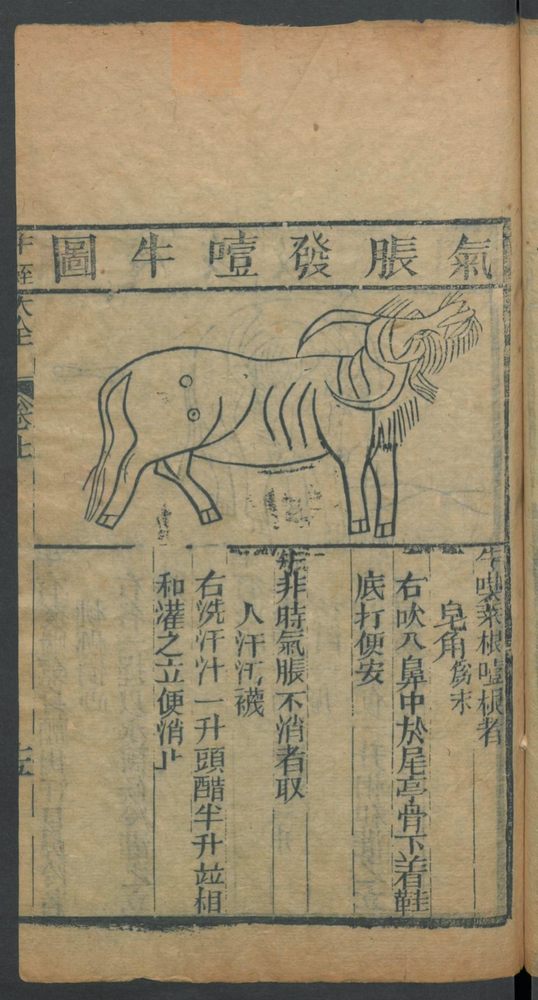 氣脹發噎牛圖
牛喫菜根噎根者
皂角為末
右吹入鼻中於尾亭骨下着鞋
底打便安
牛非時氣脹不消者取
人汗汚襪
右洗汗汁一升頭醋半升竝相
和灌之立便消止
大全
卷七